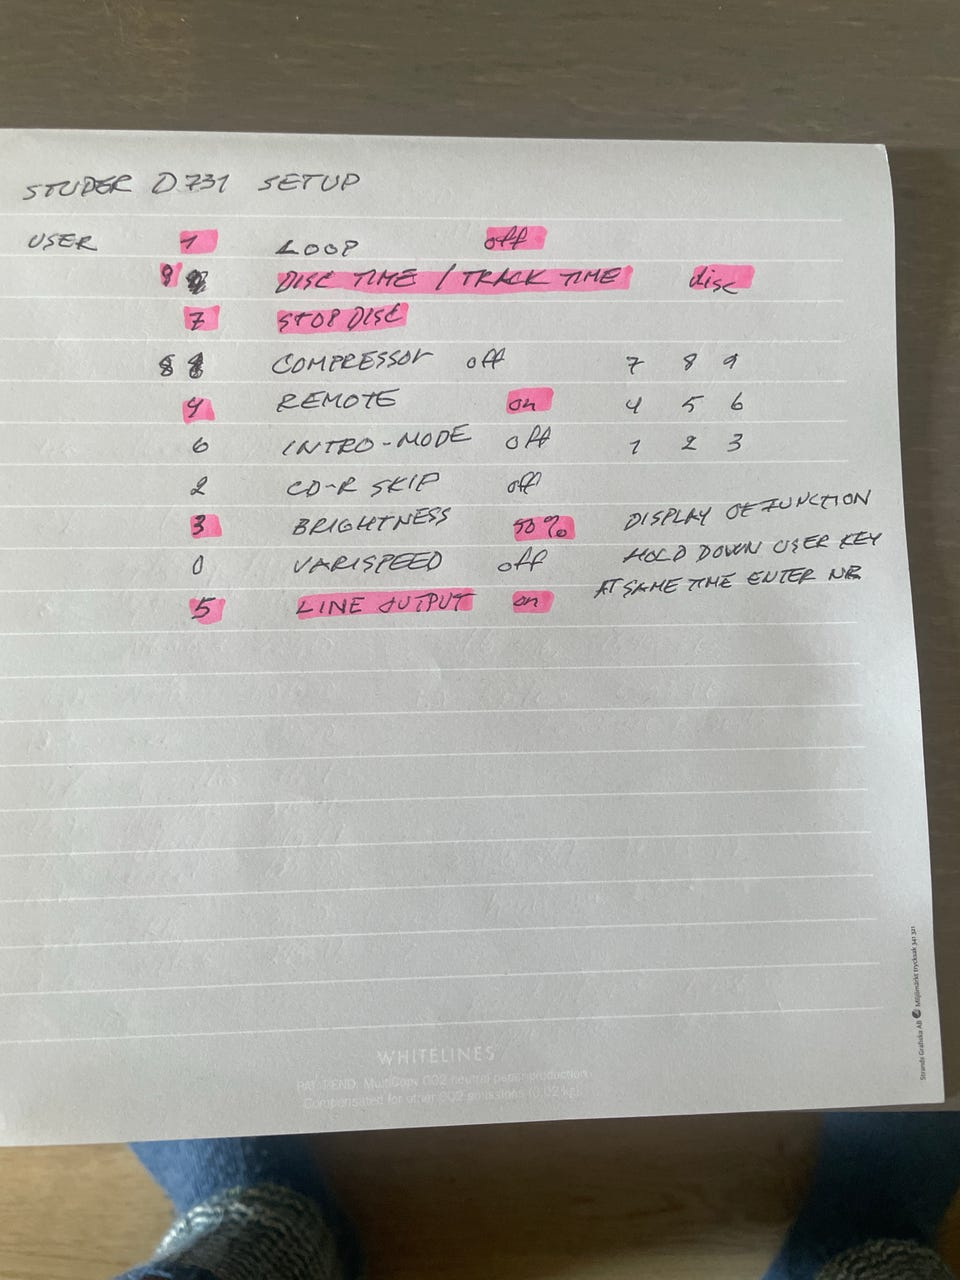 STUDER D731 SETUP
USER 1 LOOP off
9 DISC TIME / TRACK TIME disc
7 STOP DISC
8 COMPRESSOR off 7 8 9
4 REMOTE on 4 5 6
6 INTRO-MODE off 1 2 3
2 CD-R SKIP off
3 BRIGHTNESS 50% DISPLAY OF FUNCTION
0 VARISPEED off HOLD DOWN USER KEY
AT SAME TIME ENTER NR
5 LINE OUTPUT on
WHITELINES
PAT. PEND. MultiCopy CO2 neutral paper production.
Compensated for other CO2 emissions (0,02kg).
Strands Grafiska AB Miljömärkt trycksak 341 321